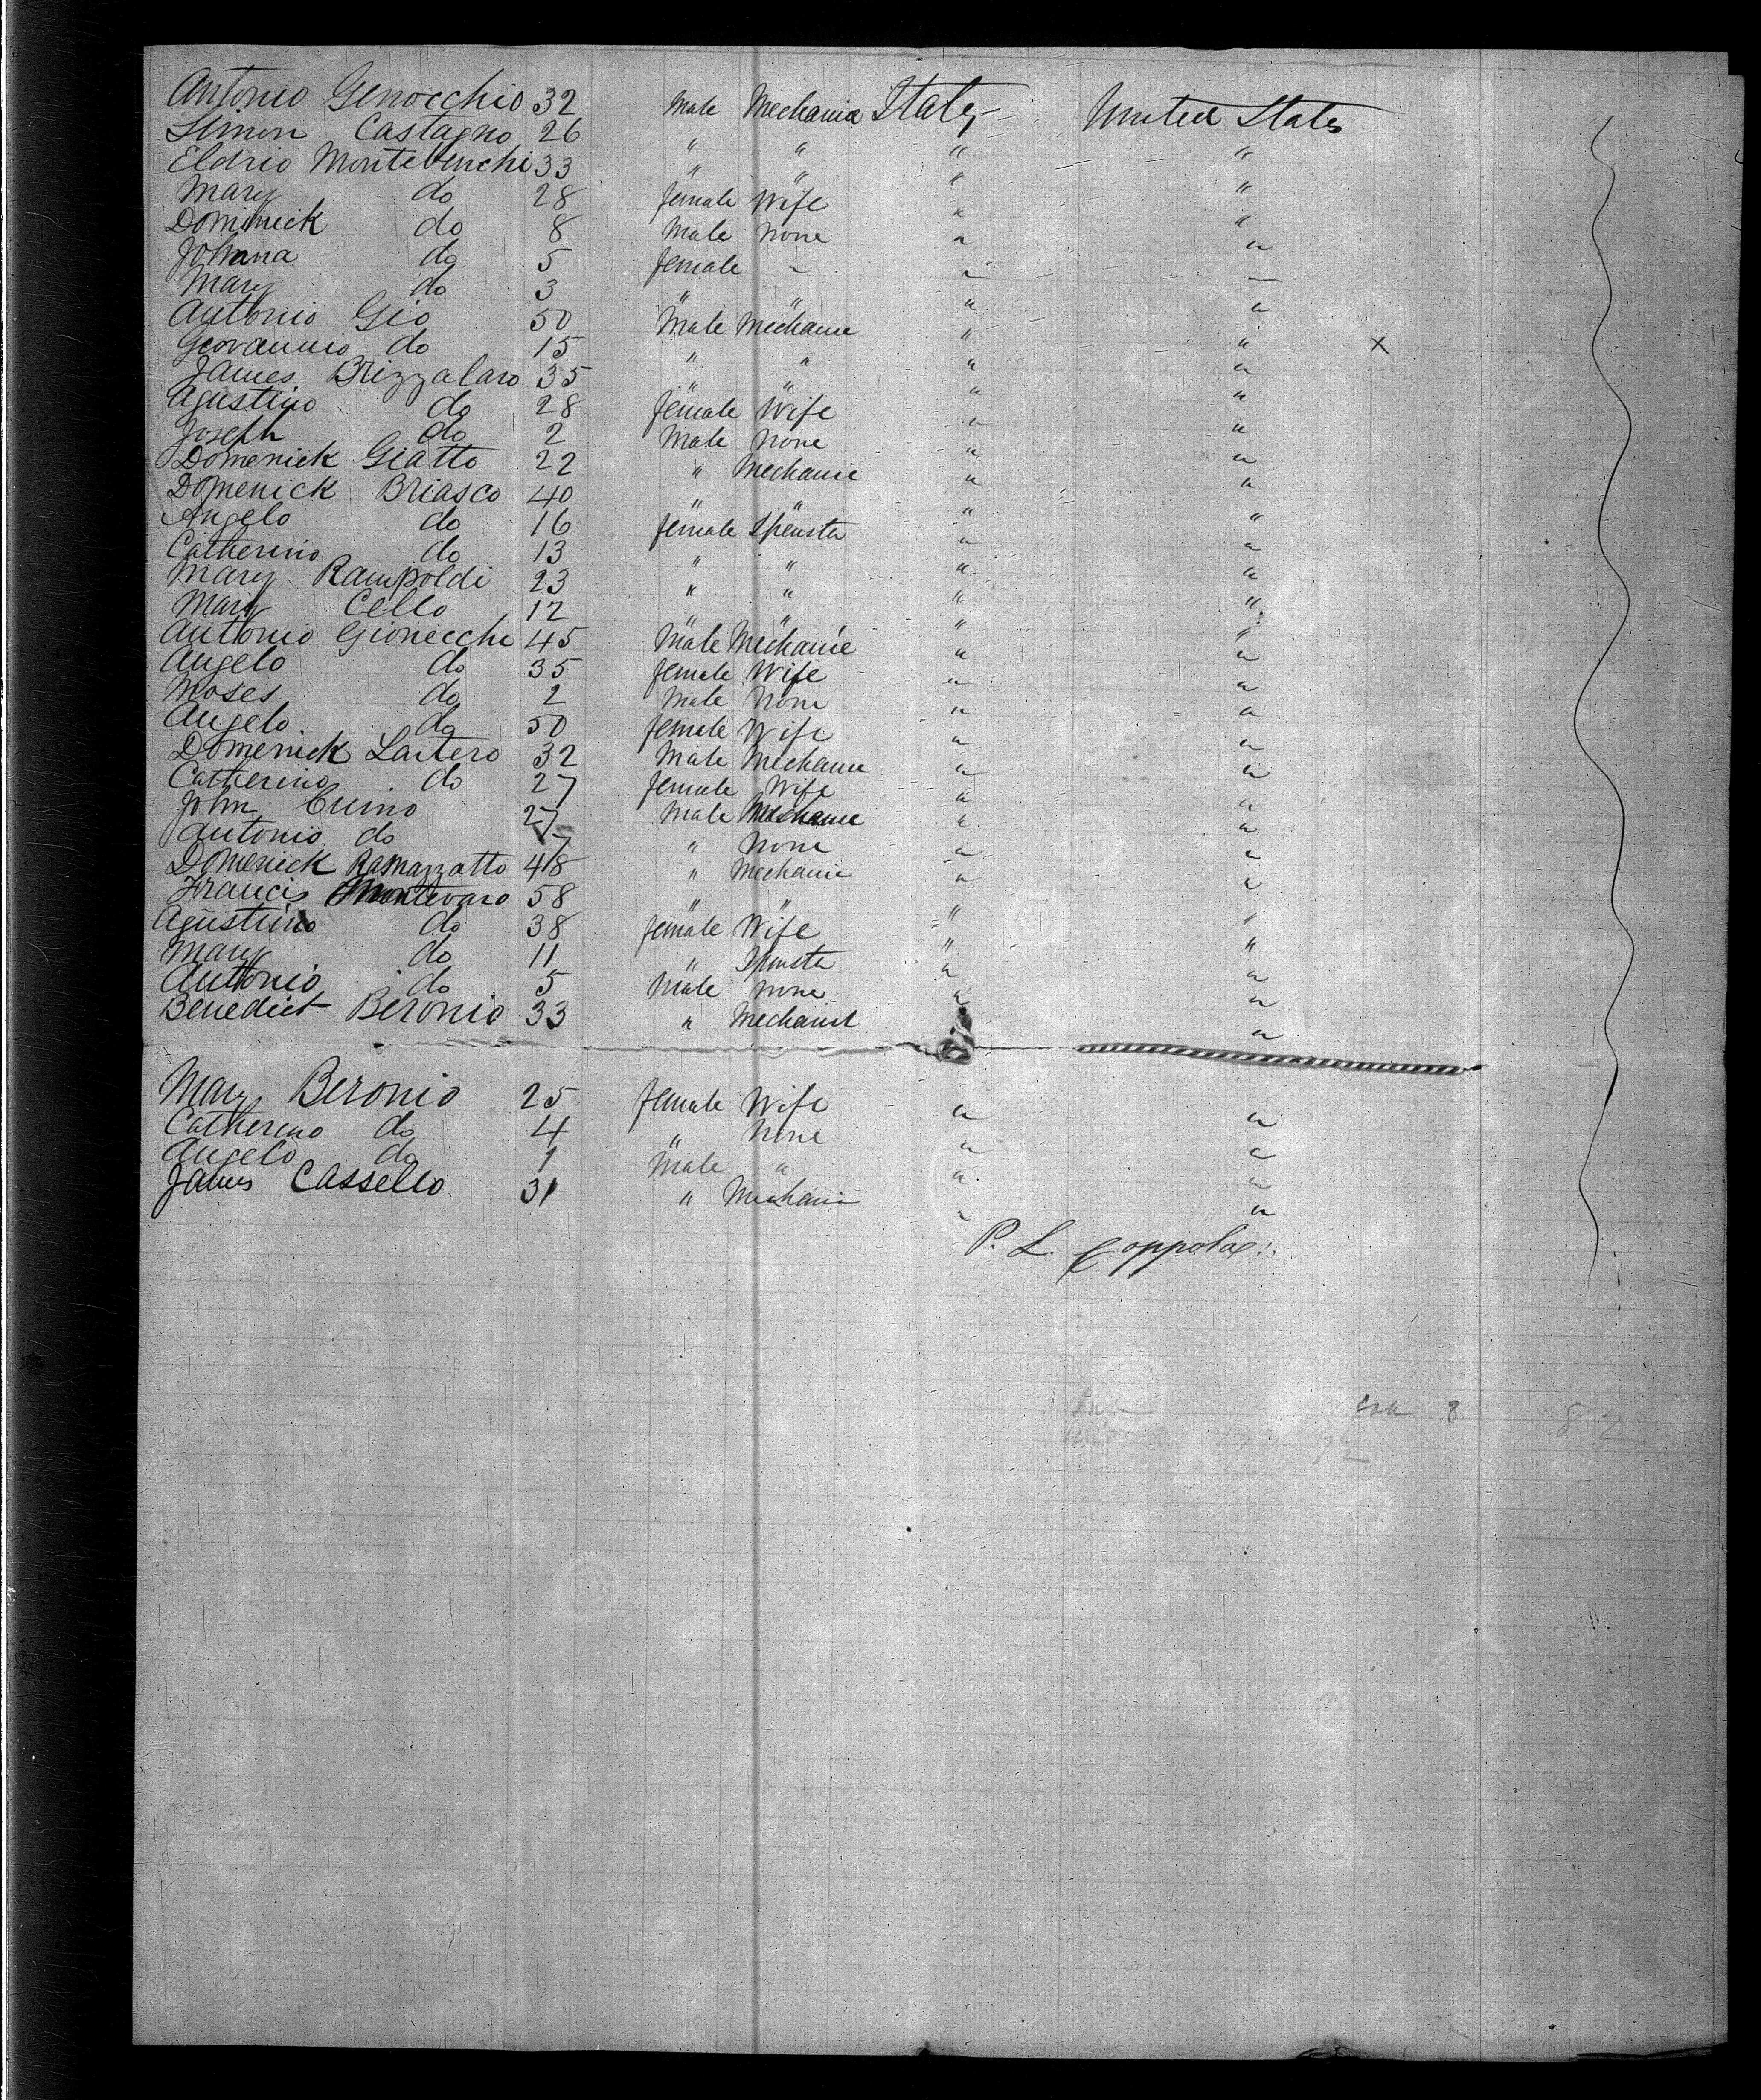 Antonio Genocchio 32 Male Mechanic Italy United States
Simon Castagno 26 " " " "
Eldrio Montebenchi 33 " " " "
Mary do 28 female Wife " "
Dominick do 8 Male None " "
Johana do 5 female " " "
Mary do 3 " " " "
Antonio Gio 50 Male Mechanic " "
Geovannio do 15 " " " " x
James Brizzalaro 35 " " " "
Agustino do 28 female Wife " "
Joseph do 2 Male None " "
Domenick Giatto 22 " Mechanic " "
Domenick Briasco 40 " " " "
Angelo do 16 female Spinster " "
Catherino do 13 " " " "
Mary Rampoldi 23 " " " "
Mary Cello 12 " " " "
Antonio Gionecche 45 Male Mechanic " "
Angelo do 35 female Wife " "
Moses do 2 Male None " "
Angelo do 50 female Wife " "
Domenick Lartero 32 Male Mechanic " "
Catherino do 27 female Wife " "
John Cuino 27 Male Mechanic " "
Antonio do 7 " None " "
Domenick Ramazzatto 48 " Mechanic " "
Francis Montevaro 58 " " " "
Agustino do 38 female Wife " "
Mary do 11 " Spinster " "
Antonio do 5 Male None " "
Benedict Beronio 33 " Mechanic " "
Mary Beronio 25 female Wife " "
Catherino do 4 " None " "
Angelo do 1 Male " " "
James Cassello 31 " Mechanic " "
P. L. Coppola
8